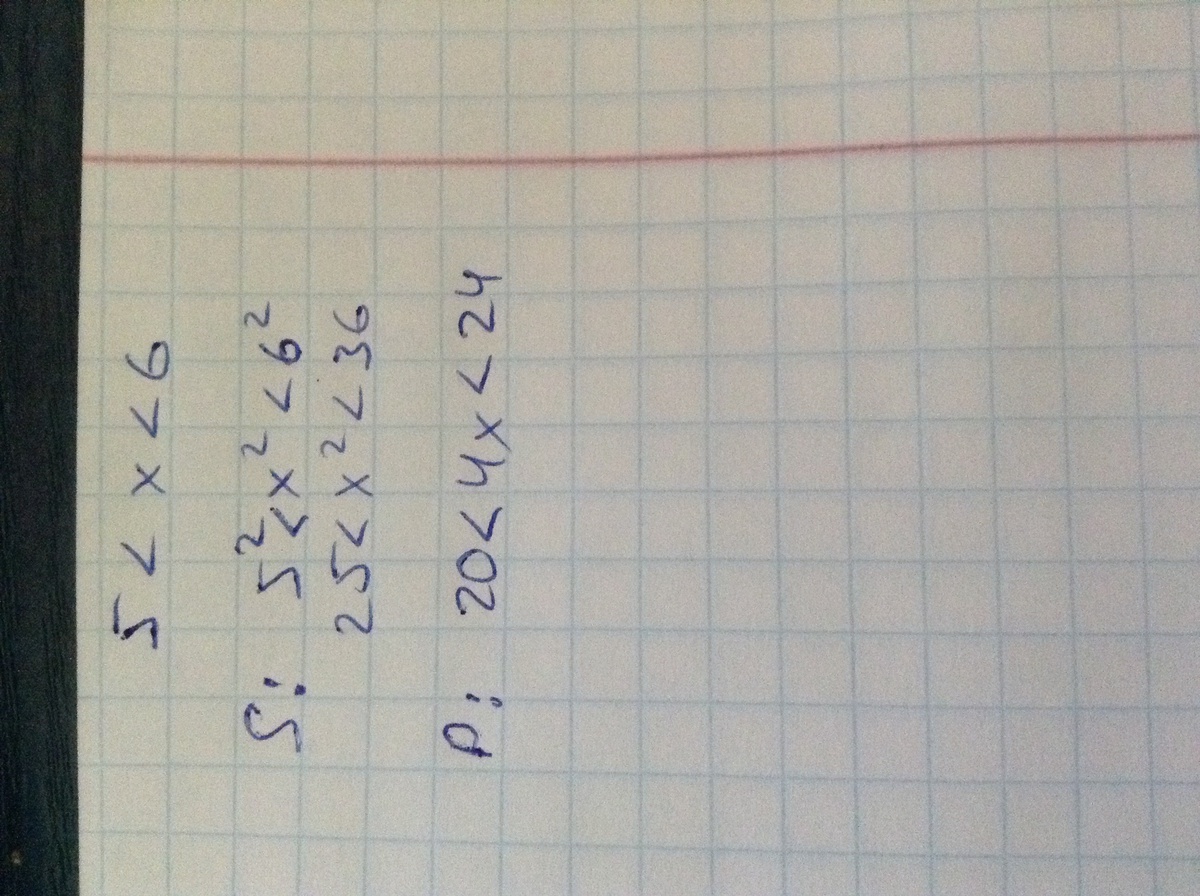 5 < x < 6
S: 5² < x² < 6²
25 < x² < 36
P: 20 < 4x < 24